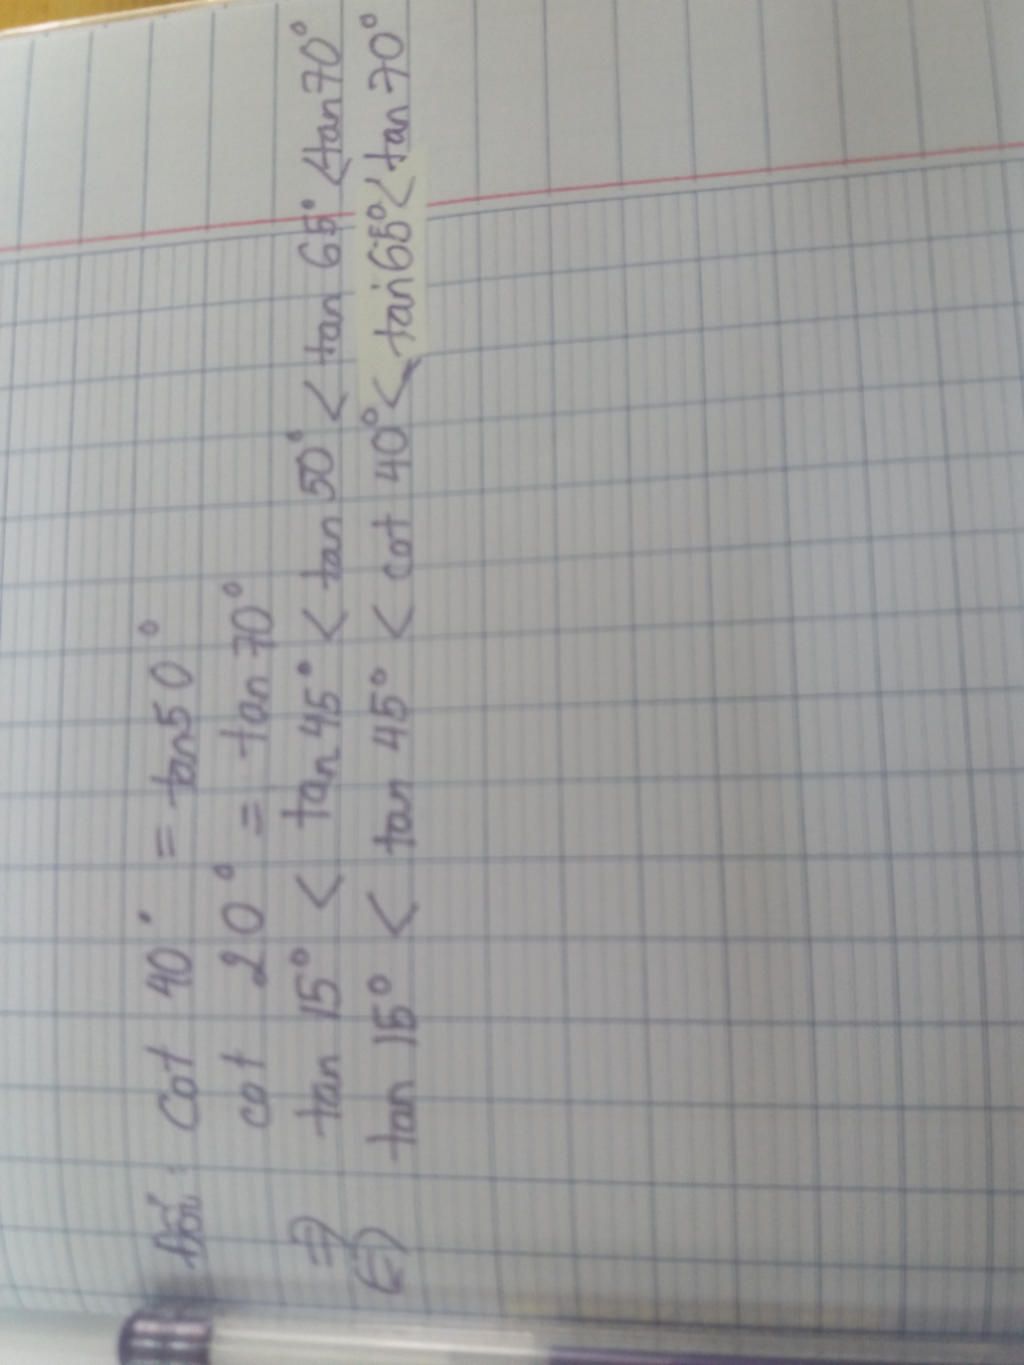 Đổi: Cot 40° = tan50°
cot 20° = tan70°
⇒ tan 15° < tan45° < tan50° < tan 65° < tan70°
⇔ tan 15° < tan 45° < cot 40° < tan65° < tan70°